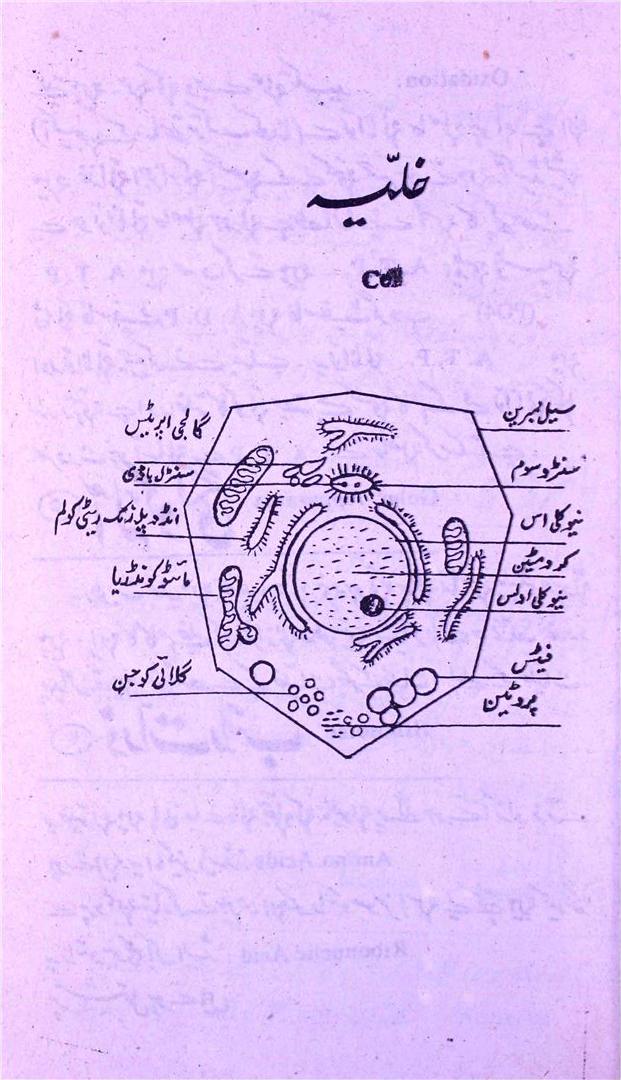 خلیّہ
Cell
سیل ممبرین
گالجی اپریٹس
سنٹروسوم
سنٹرل باڈی
نیوکلی اس
انڈوپلازمک ریٹی کولم
کرومیٹن
مائٹوکونڈریا
نیوکلی اولس
فیٹس
گلائی کوجن
پروٹین